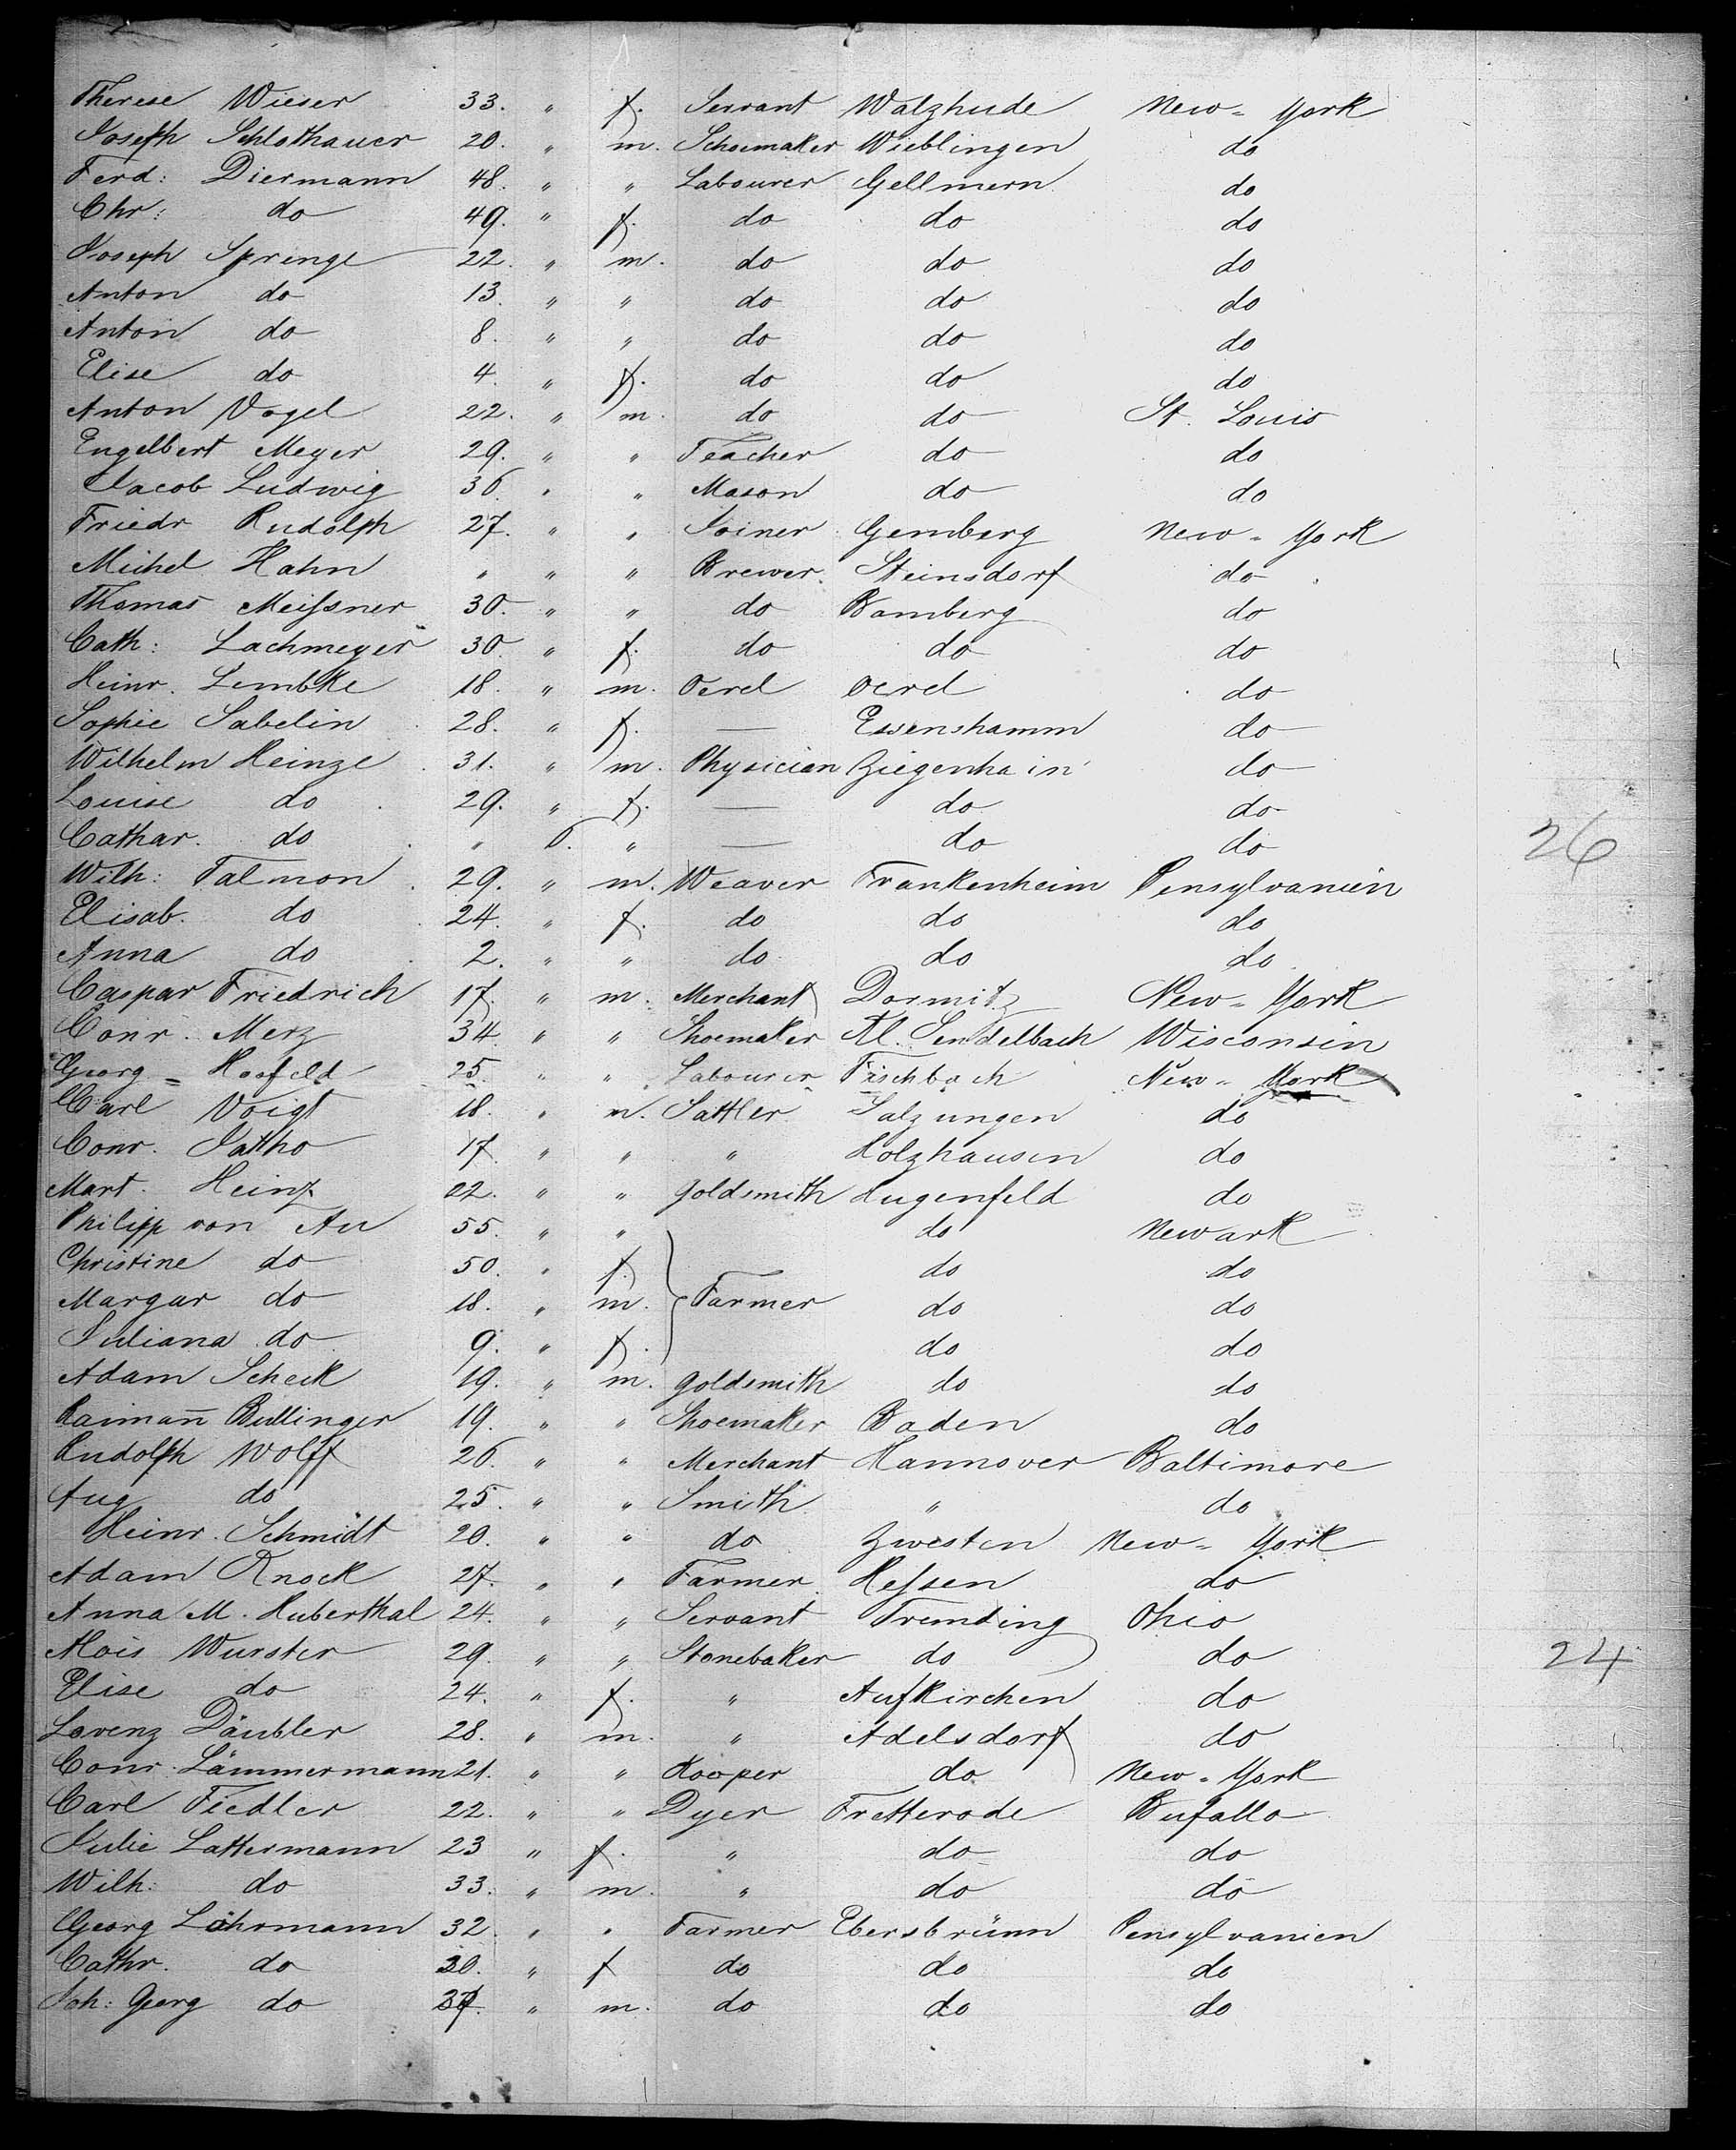 Therese Wieser 33. " f. Servant Walzhude New-York
Joseph Schlothauer 20. " m. Schoemaker Wieblingen do
Ferd: Diermann 48. " " Labourer Gellmern do
Chr: do 49. " f. do do do
Joseph Springe 22. " m. do do do
Anton do 13. " " do do do
Anton do 8. " " do do do
Elise do 4. " f. do do do
Anton Vogel 22. " m. do do St. Louis
Engelbert Meyer 29. " " Teacher do do
Jacob Ludwig 36. " " Mason do do
Friedr Rudolph 27. " " Joiner Gemberg New-York
Michel Hahn " " " Brewer. Steinsdorf do
Thomas Meißner 30. " " do Bamberg do
Cath: Lachmeyer 30. " f. do do do
Heinr. Lembke 18. " m. Oerel Oerel do
Sophie Sabelin 28. " f. — Essenshamm do
Wilhelm Heinze 31. " m. Physician Ziegenhain do
Louise do 29. " f. — do do
Cathar. do " 6. " — do do
26
Wilh: Talmon 29. " m. Weaver Frankenheim Pensylvanien
Elisab. do 24. " f. do do do
Anna do 2. " " do do do
Caspar Friedrich 17. " m. Merchant Dormitz New-York
Conr. Merz 34. " " Shoemaker Kl. Sendelbach Wisconsin
Georg Hosfeld 25. " " Labourer Fischbach New-York
Carl Voigt 18. " m. Sattler Salzungen do
Conr. Jatho 17. " " " Holzhausen do
Mart. Heinz 22. " " Goldsmith Hugenfeld do
Philipp von Au 55. " " do Newark
Christine do 50. " f. do do
Margar do 18. " m. Farmer do do
Juliana do 9. " f. do do
Adam Scheck 19. " m. Goldsmith do do
Raimañ Bullinger 19. " " Shoemaker Baden do
Rudolph Wolff 26. " " Merchant Hannover Baltimore
Aug do 25. " " Smith " do
Heinr. Schmidt 20. " " do Zwesten New-York
Adam Knock 27. " " Farmer Heßen do
Anna M. Huberthal 24. " " Servant Tremding Ohio
Alois Wurster 29. " " Stonebaker do do
24
Elise do 24. " f. " Aufkirchen do
Lorenz Däubler 28. " m. " Adelsdorf do
Conr. Lämmermann 21. " " Kooper do New-York
Carl Fiedler 22. " " Dyer Fretterode Bufallo
Julie Lattermann 23 " f. " do do
Wilh: do 33. " m. " do do
Georg Löhrmann 32. " " Farmer Ebersbrünn Pensylvanien
Cathr. do 30. " f do do do
Joh: Georg do " m. do do do